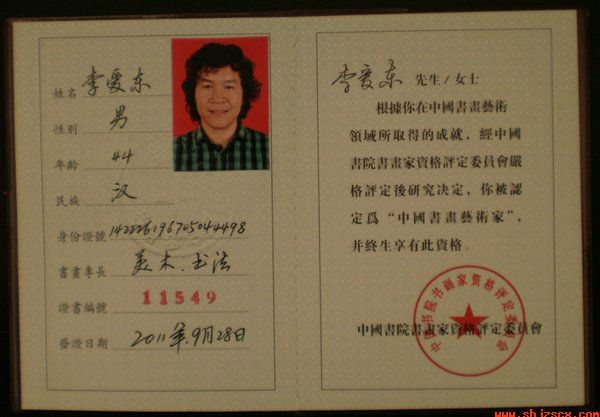 姓名 李爱东
性别 男
年龄 44
民族 汉
身份證號 142226196705044498
書畫專長 美术、书法
證書編號 11549
發證日期 2011年9月28日
李爱东 先生/女士
根據你在中國書畫藝術
領域所取得的成就，經中國
書院書畫家資格評定委員會嚴
格評定後研究决定，你被認
定爲“中國書畫藝術家”，
并終生享有此資格。
中國書院書畫家資格評定委員會
中国书院书画家资格评定委员会
www.shjzscx.com